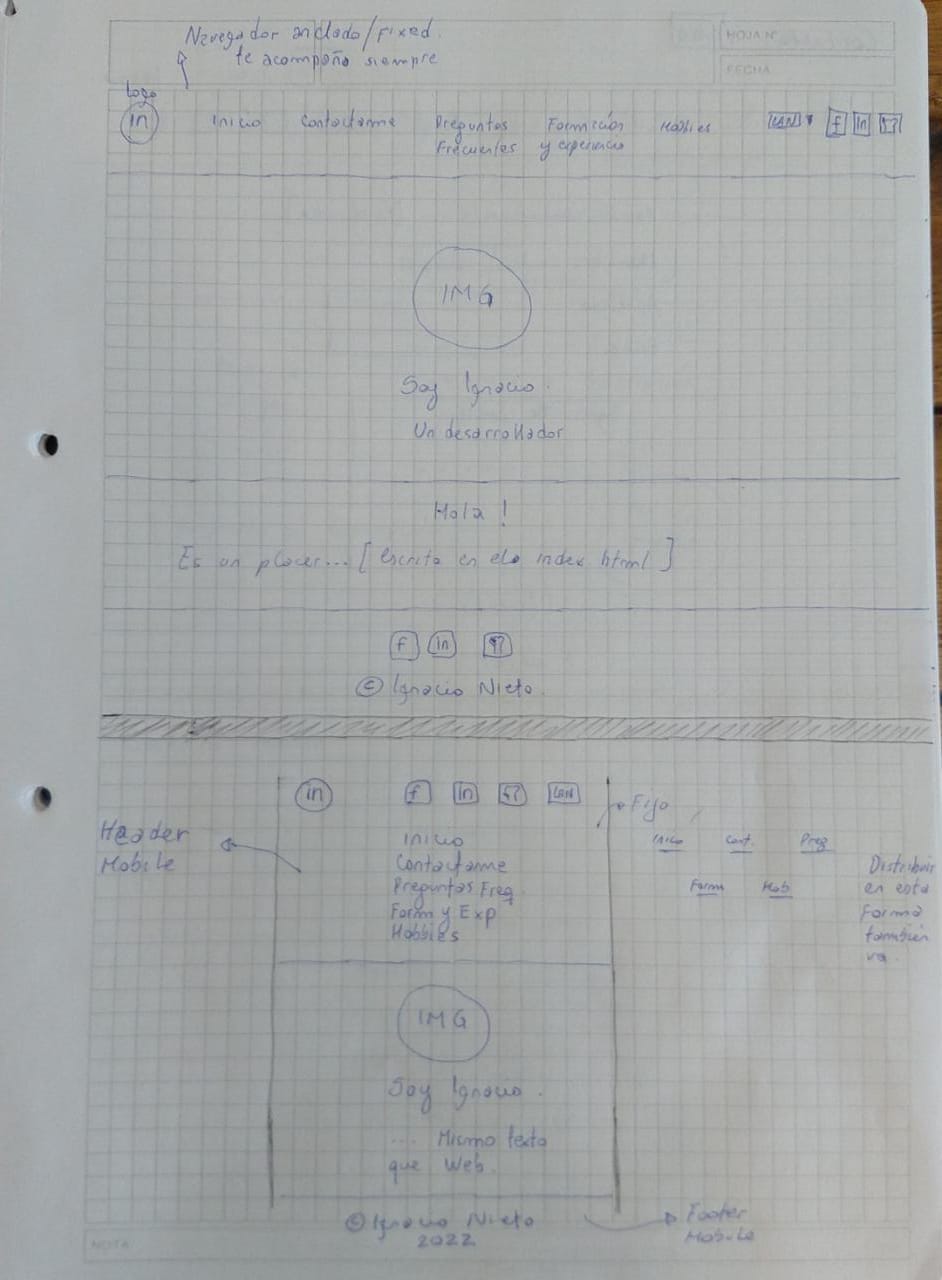 Navegador anclado/Fixed.
te acompaña siempre
HOJA Nº
FECHA
Logo
in
Inicio
Contactarme
Preguntas
Frecuentes
Formación
y experiencia
Hobbies
LAN
f
in
IMG
Soy Ignacio.
Un desarrollador
Hola !
Es un placer... [ escrito en elo index html ]
f
in
© Ignacio Nieto.
in
f
in
LAN
Fijo
Header
Mobile
Inicio
Contactarme
Preguntas Freq.
Form y Exp
Hobbies
Inicio Cont. Preg
Form Hob
Distribuir
en esta
forma
también
va.
IMG
Soy Ignacio.
.... Mismo texto
que Web.
© Ignacio Nieto
2022
Footer
Mobile
NOTA